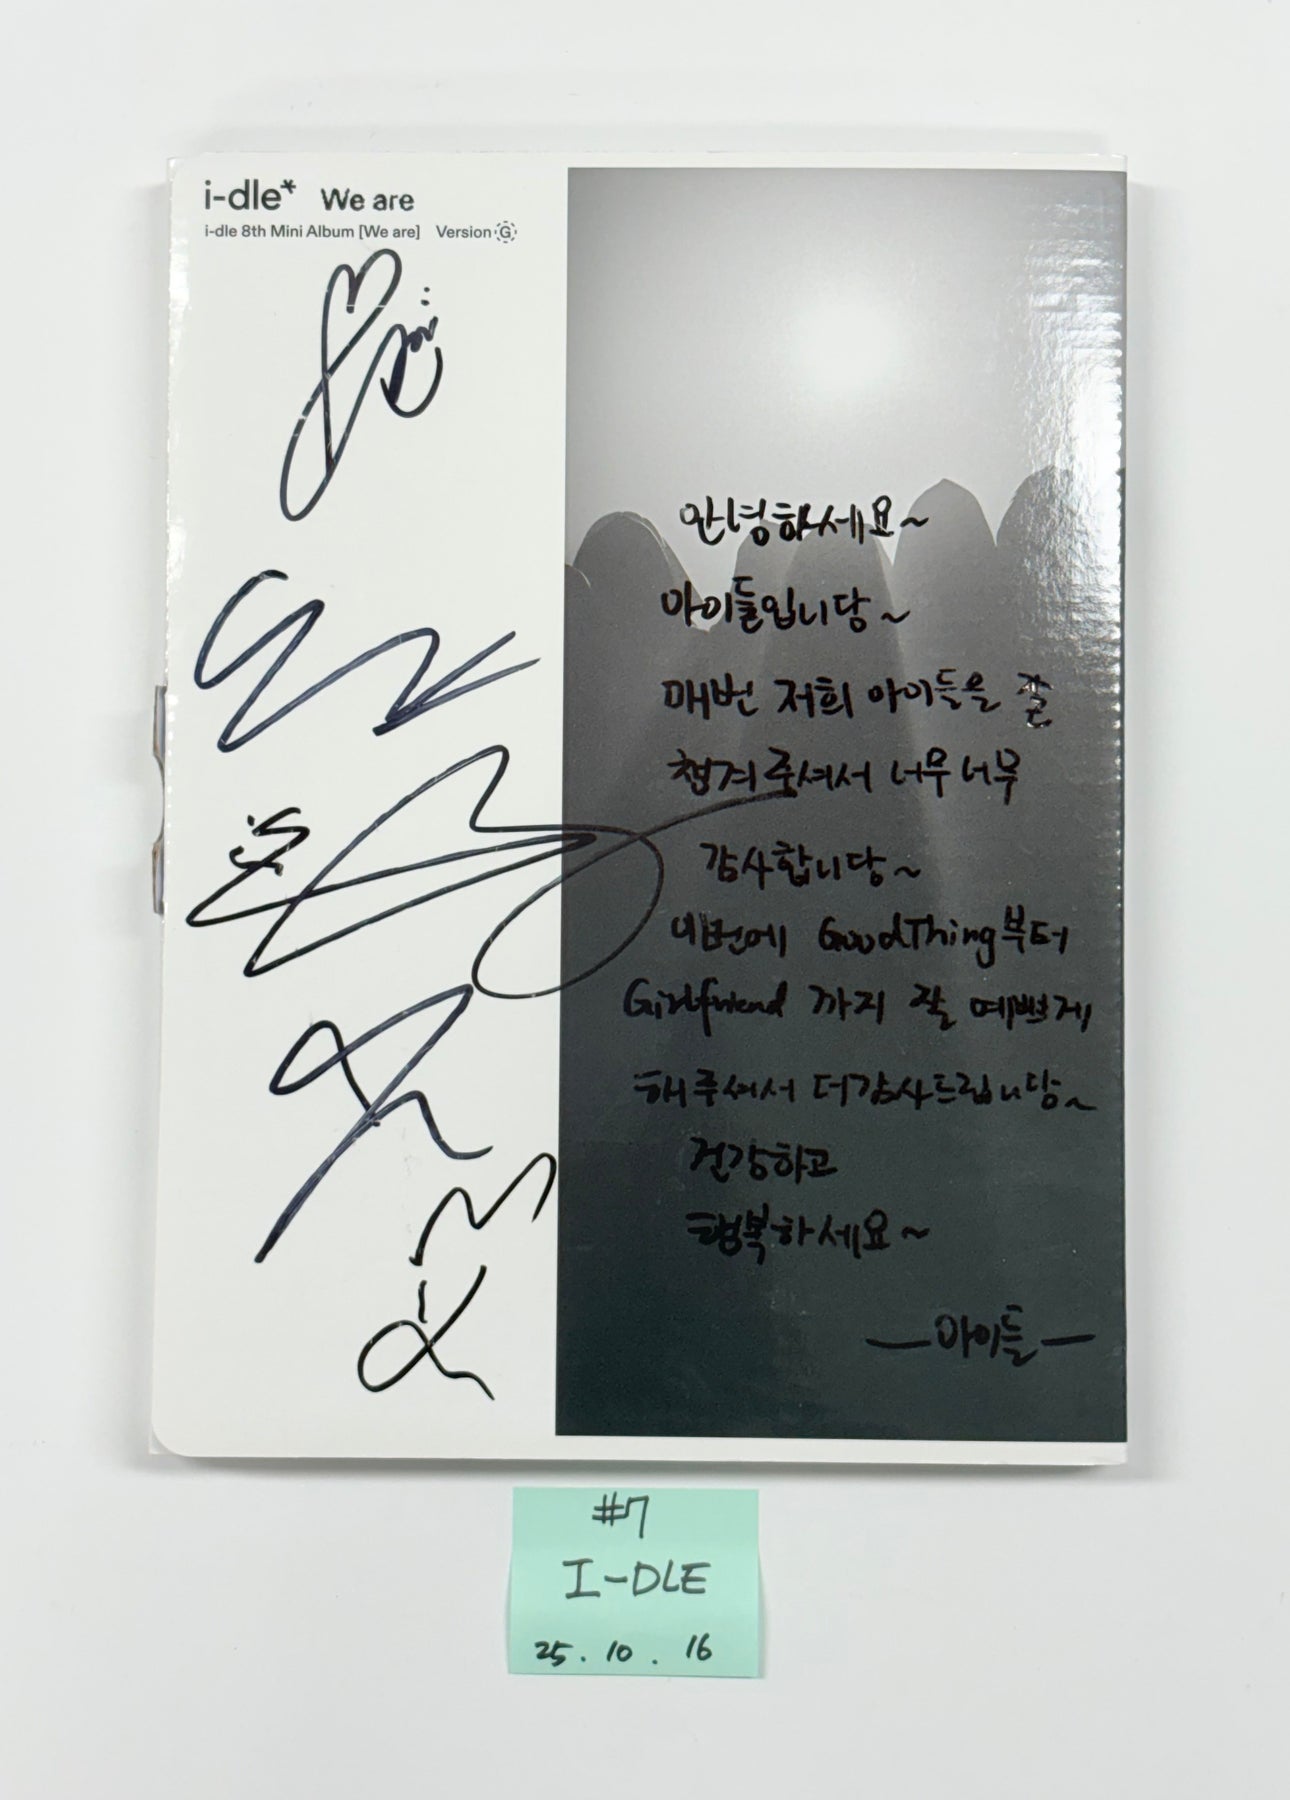 i-dle* We are
i-dle 8th Mini Album [We are] Version G
안녕하세요~
아이들입니당~
매번 저희 아이들을 잘
챙겨주셔서 너무너무
감사합니당~
이번에 GoodThing부터
Girlfriend 까지 잘 예쁘게
해주셔서 더 감사드립니당~
건강하고
행복하세요~
—아이들—
#7
I-DLE
25.10.16